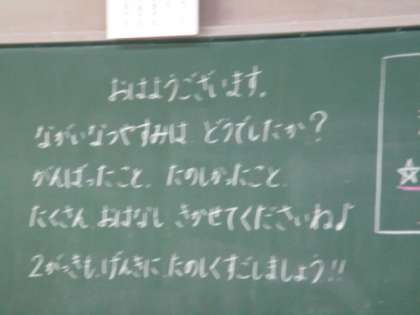 おはようございます。
ながいなつやすみは どうでしたか?
がんばったこと、たのしかったこと、
たくさん おはなし きかせてくださいね♪
2がっきも、げんきに、たのしくすごしましょう!!
☆